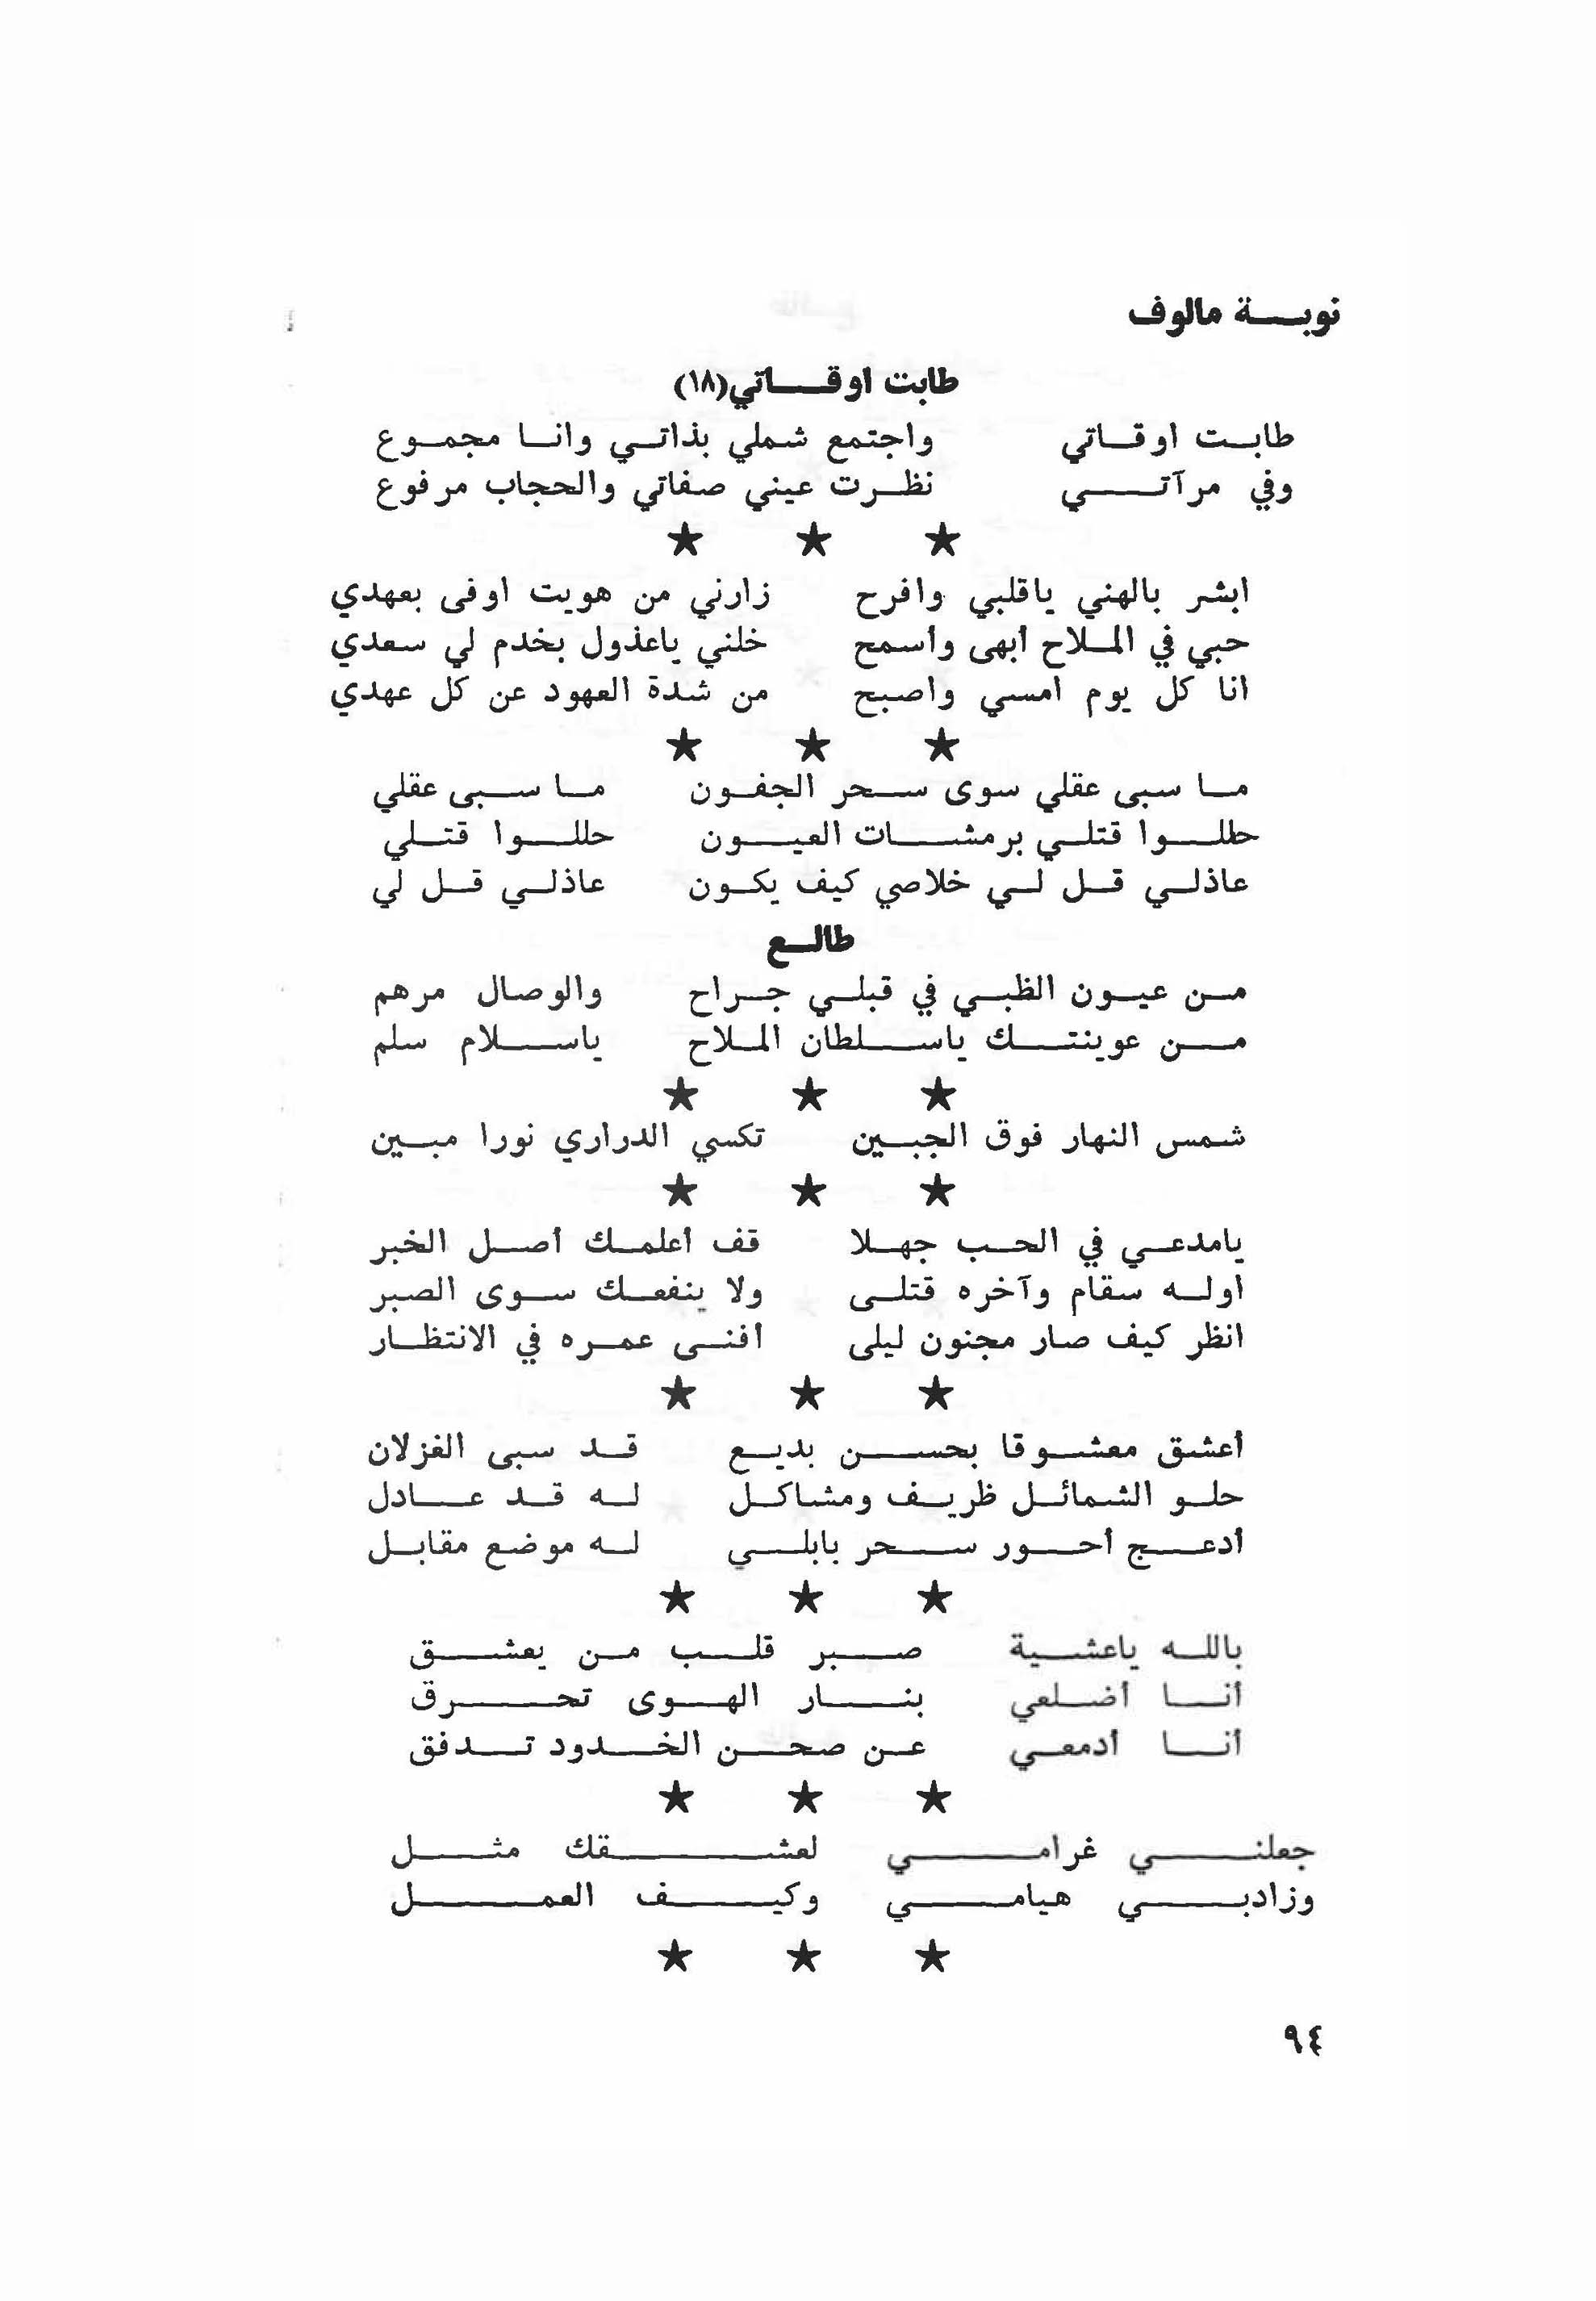 نوبة مالوف
طابت اوقاتي(١٨)
طابت اوقاتي واجتمع شملي بذاتي وانا مجموع
وفي مرآتي نظرت عيني صفاتي والحجاب مرفوع
★ ★ ★
ابشر بالهني ياقلبي وافرح زارني من هويت اوفى بعهدي
حبي في الملاح أبهى وأسمح خلني ياعذول بخدم لي سعدي
انا كل يوم امسي واصبح من شدة العهود عن كل عهدي
★ ★ ★
ما سبى عقلي سوى سحر الجفون ما سبى عقلي
حللوا قتلي برمشات العيون حللوا قتلي
عاذلي قل لي خلاصي كيف يكون عاذلي قل لي
طالع
من عيون الظبي في قبلي جراح والوصال مرهم
من عوينتك ياسلطان الملاح ياسلام سلم
★ ★ ★
شمس النهار فوق الجبين تكسي الدراري نورا مبين
★ ★ ★
يامدعي في الحب جهلا قف أعلمك أصل الخبر
اوله سقام وآخره قتلى ولا ينفعك سوى الصبر
انظر كيف صار مجنون ليلى أفنى عمره في الانتظار
★ ★ ★
أعشق معشوقا بحسن بديع قد سبى الغزلان
حلو الشمائل ظريف ومشاكل له قد عادل
أدعج أحور سحر بابلي له موضع مقابل
★ ★ ★
بالله ياعشية صبر قلب من يعشق
أنا أضلعي بنار الهوى تحرق
أنا أدمعي عن صحن الخدود تدفق
★ ★ ★
جعلني غرامي لعشقك مثل
وزادبي هيامي وكيف العمل
★ ★ ★
٩٤